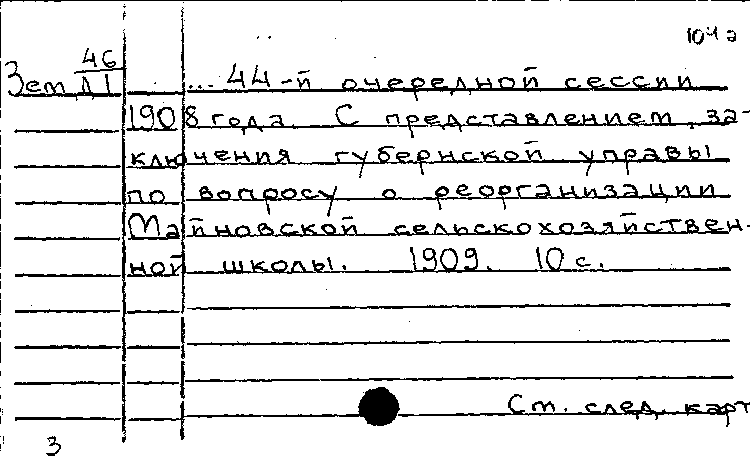 104 а
46
Зем Д1 ... 44-й очередной сессии
1908 года. С представлением за-
ключения губернской управы
по вопросу о реорганизации
Майновской сельскохозяйствен-
ной школы. 1909. 10 с.
См. след. карт
3